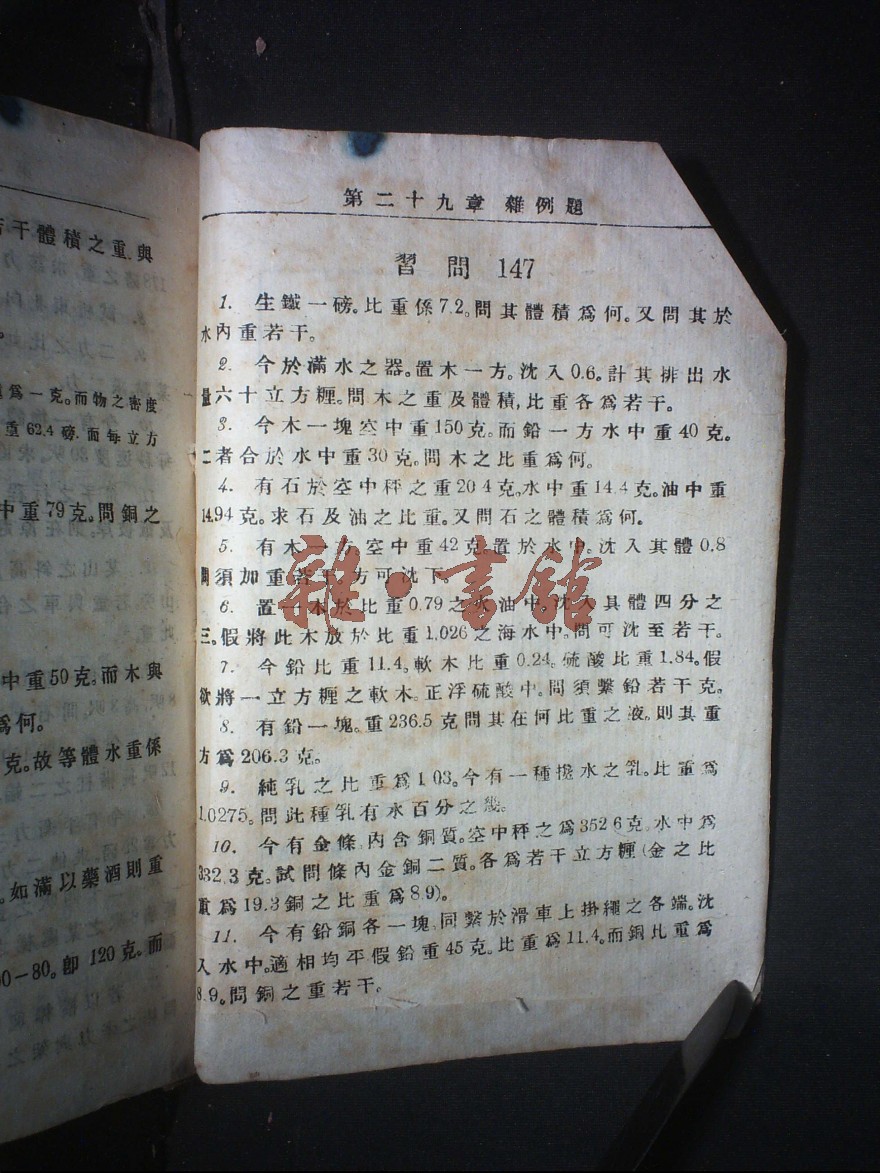 第二十九章 雜例題
習問 147
1. 生鐵一磅。比重係7.2。問其體積爲何。又問其於
水內重若干。
2. 今於滿水之器。置木一方。沈入0.6。計其排出水
量六十立方糎。問木之重及體積,比重各爲若干。
3. 今木一塊空中重150克。而鉛一方水中重40克。
二者合於水中重30克。問木之比重爲何。
4. 有石於空中秤之重20.4克,水中重14.4克。油中重
14.94克。求石及油之比重。又問石之體積爲何。
5. 有木一方,空中重42克。置於水中。沈入其體0.8
問須加重若干,方可沈下。
6. 置一木於比重0.79之火油中,沈入其體四分之
三。假將此木放於比重1.026之海水中。問可沈至若干。
7. 今鉛比重11.4。軟木比重0.24。硫酸比重1.84。假
欲將一立方糎之軟木。正浮硫酸中。問須繫鉛若干克。
8. 有鉛一塊。重236.5克問其在何比重之液。則其重
方爲206.3克。
9. 純乳之比重爲1.03。今有一種攙水之乳。比重爲
1.0275。問此種乳有水百分之幾。
10. 今有金條,內含銅質。空中秤之爲352.6克。水中爲
332.3克。試問條內金銅二質。各爲若干立方糎(金之比
重爲19.3銅之比重爲8.9)。
11. 今有鉛銅各一塊,同繫於滑車上掛繩之各端。沈
入水中。適相均平假鉛重45克。比重爲11.4。而銅比重爲
8.9。問銅之重若干。
干體積之重與
爲一克。而物之密度
重62.4磅.面每立方
中重79克。問銅之
中重50克。而木與
爲何。
克。故等體水重係
如滿以藥酒則重
0-80。卽 120克。而
雜·書館